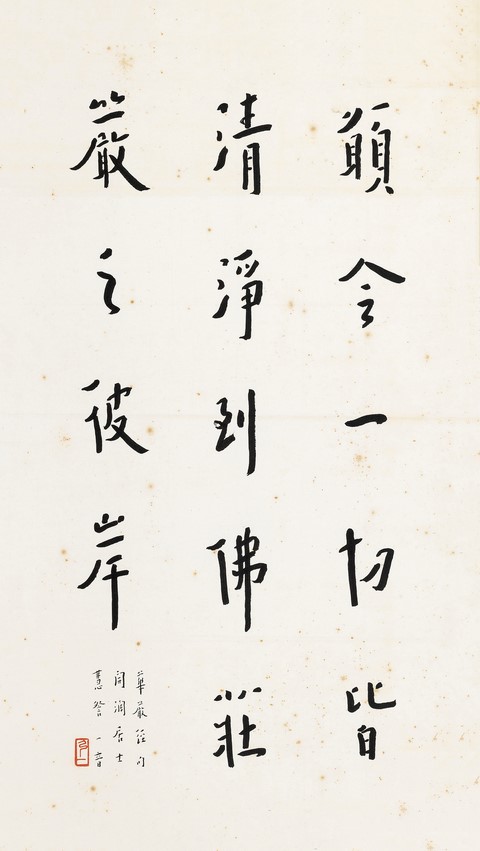 願令一切皆
清淨到佛莊
嚴之彼岸
華嚴經句
閏润居士
慧誉一音